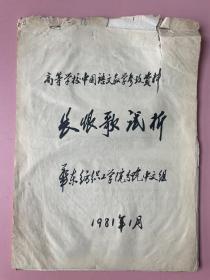 高等学校中国语文教学参考资料
长恨歌试析
华东纺织工学院 中文组
1981年1月